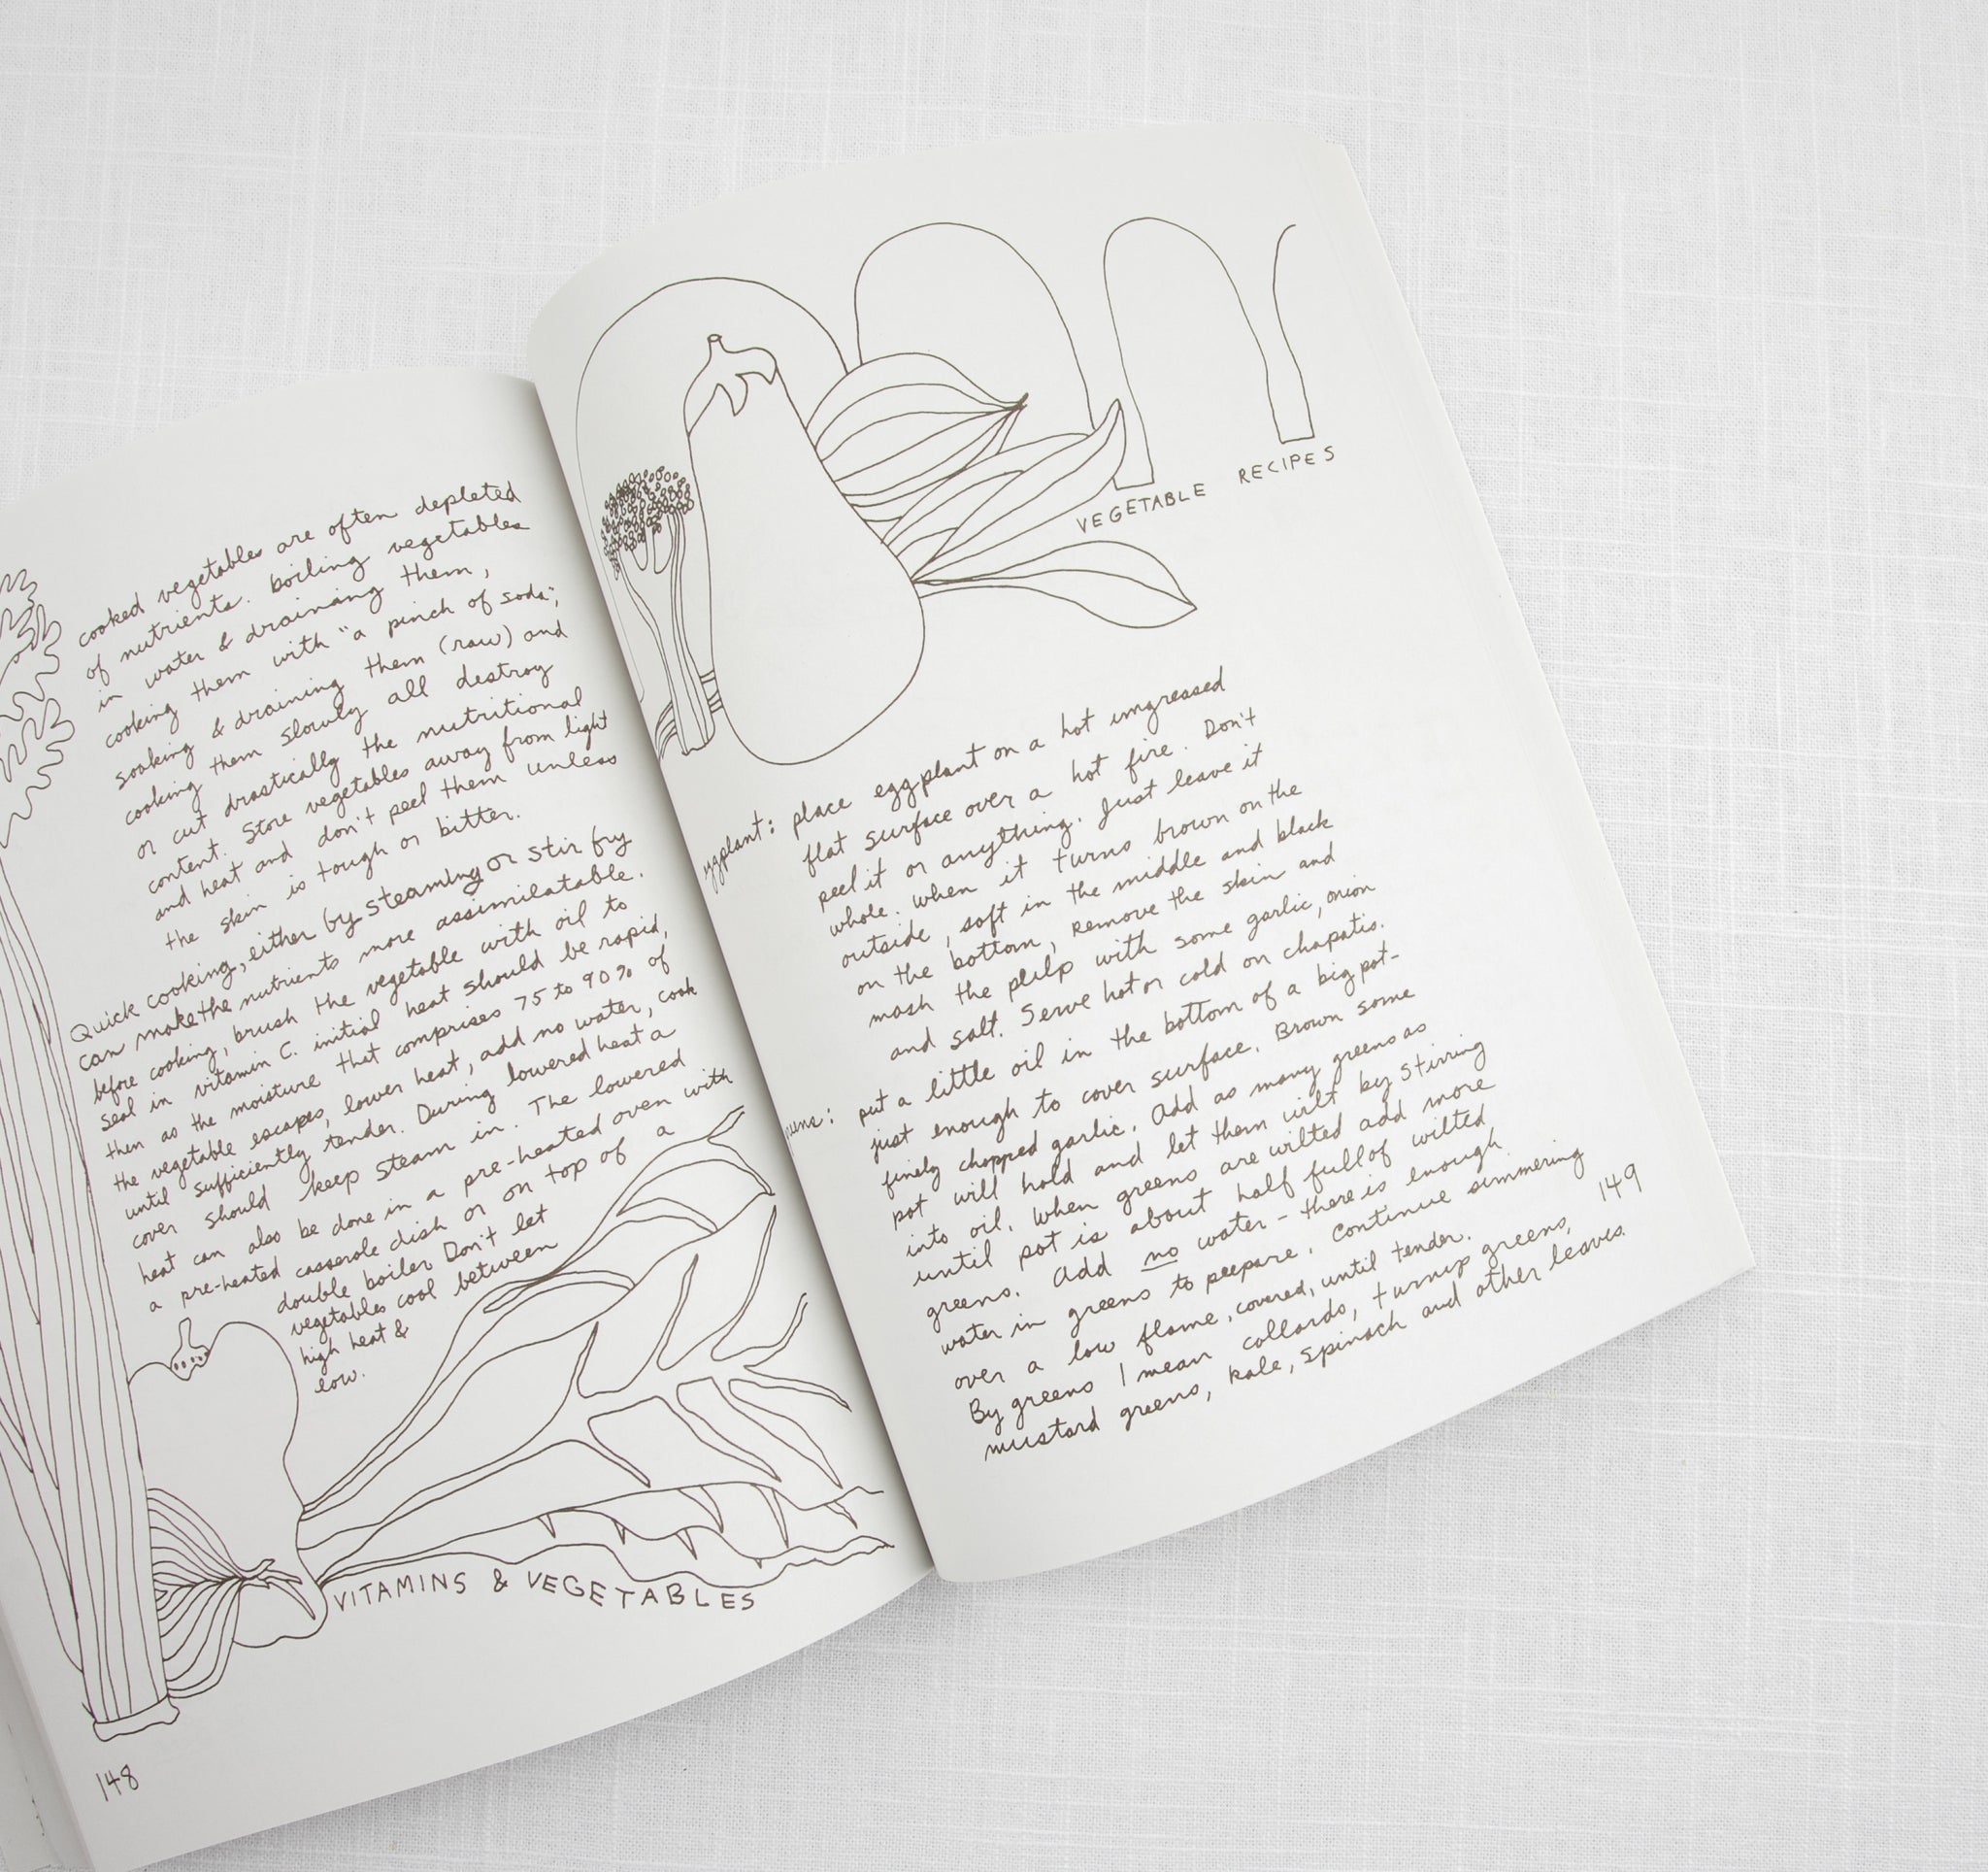 cooked vegetables are often depleted
of nutrients. boiling vegetables
in water & draining them,
cooking them with "a pinch of soda",
soaking & draining them (raw) and
cooking them slowly all destroy
or cut drastically the nutritional
content. Store vegetables away from light
and heat and don't peel them unless
the skin is tough or bitter.
Quick cooking, either by steaming or stir fry
can make the nutrients more assimilatable.
before cooking, brush the vegetable with oil to
seal in vitamin C. initial heat should be rapid,
then as the moisture that comprises 75 to 90% of
the vegetable escapes, lower heat, add no water, cook
until sufficiently tender. During lowered heat a
cover should keep steam in. The lowered
heat can also be done in a pre-heated oven with
a pre-heated casserole dish or on top of a
double boiler Don't let
vegetables cool between
high heat &
low.
VITAMINS & VEGETABLES
148
VEGETABLE RECIPES
eggplant: place eggplant on a hot ungreased
flat surface over a hot fire. Don't
peel it or anything. Just leave it
whole. when it turns brown on the
outside, soft in the middle and black
on the bottom, remove the skin and
mash the pulp with some garlic, onion
and salt. Serve hot or cold on chapatis.
put a little oil in the bottom of a big pot-
just enough to cover surface. Brown some
finely chopped garlic. Add as many greens as
pot will hold and let them wilt by stirring
into oil. When greens are wilted add more
until pot is about half full of wilted
greens. Add no water - there is enough
water in greens to prepare. Continue simmering
over a low flame, covered, until tender.
By greens I mean collards, turnip greens,
mustard greens, kale, spinach and other leaves.
149